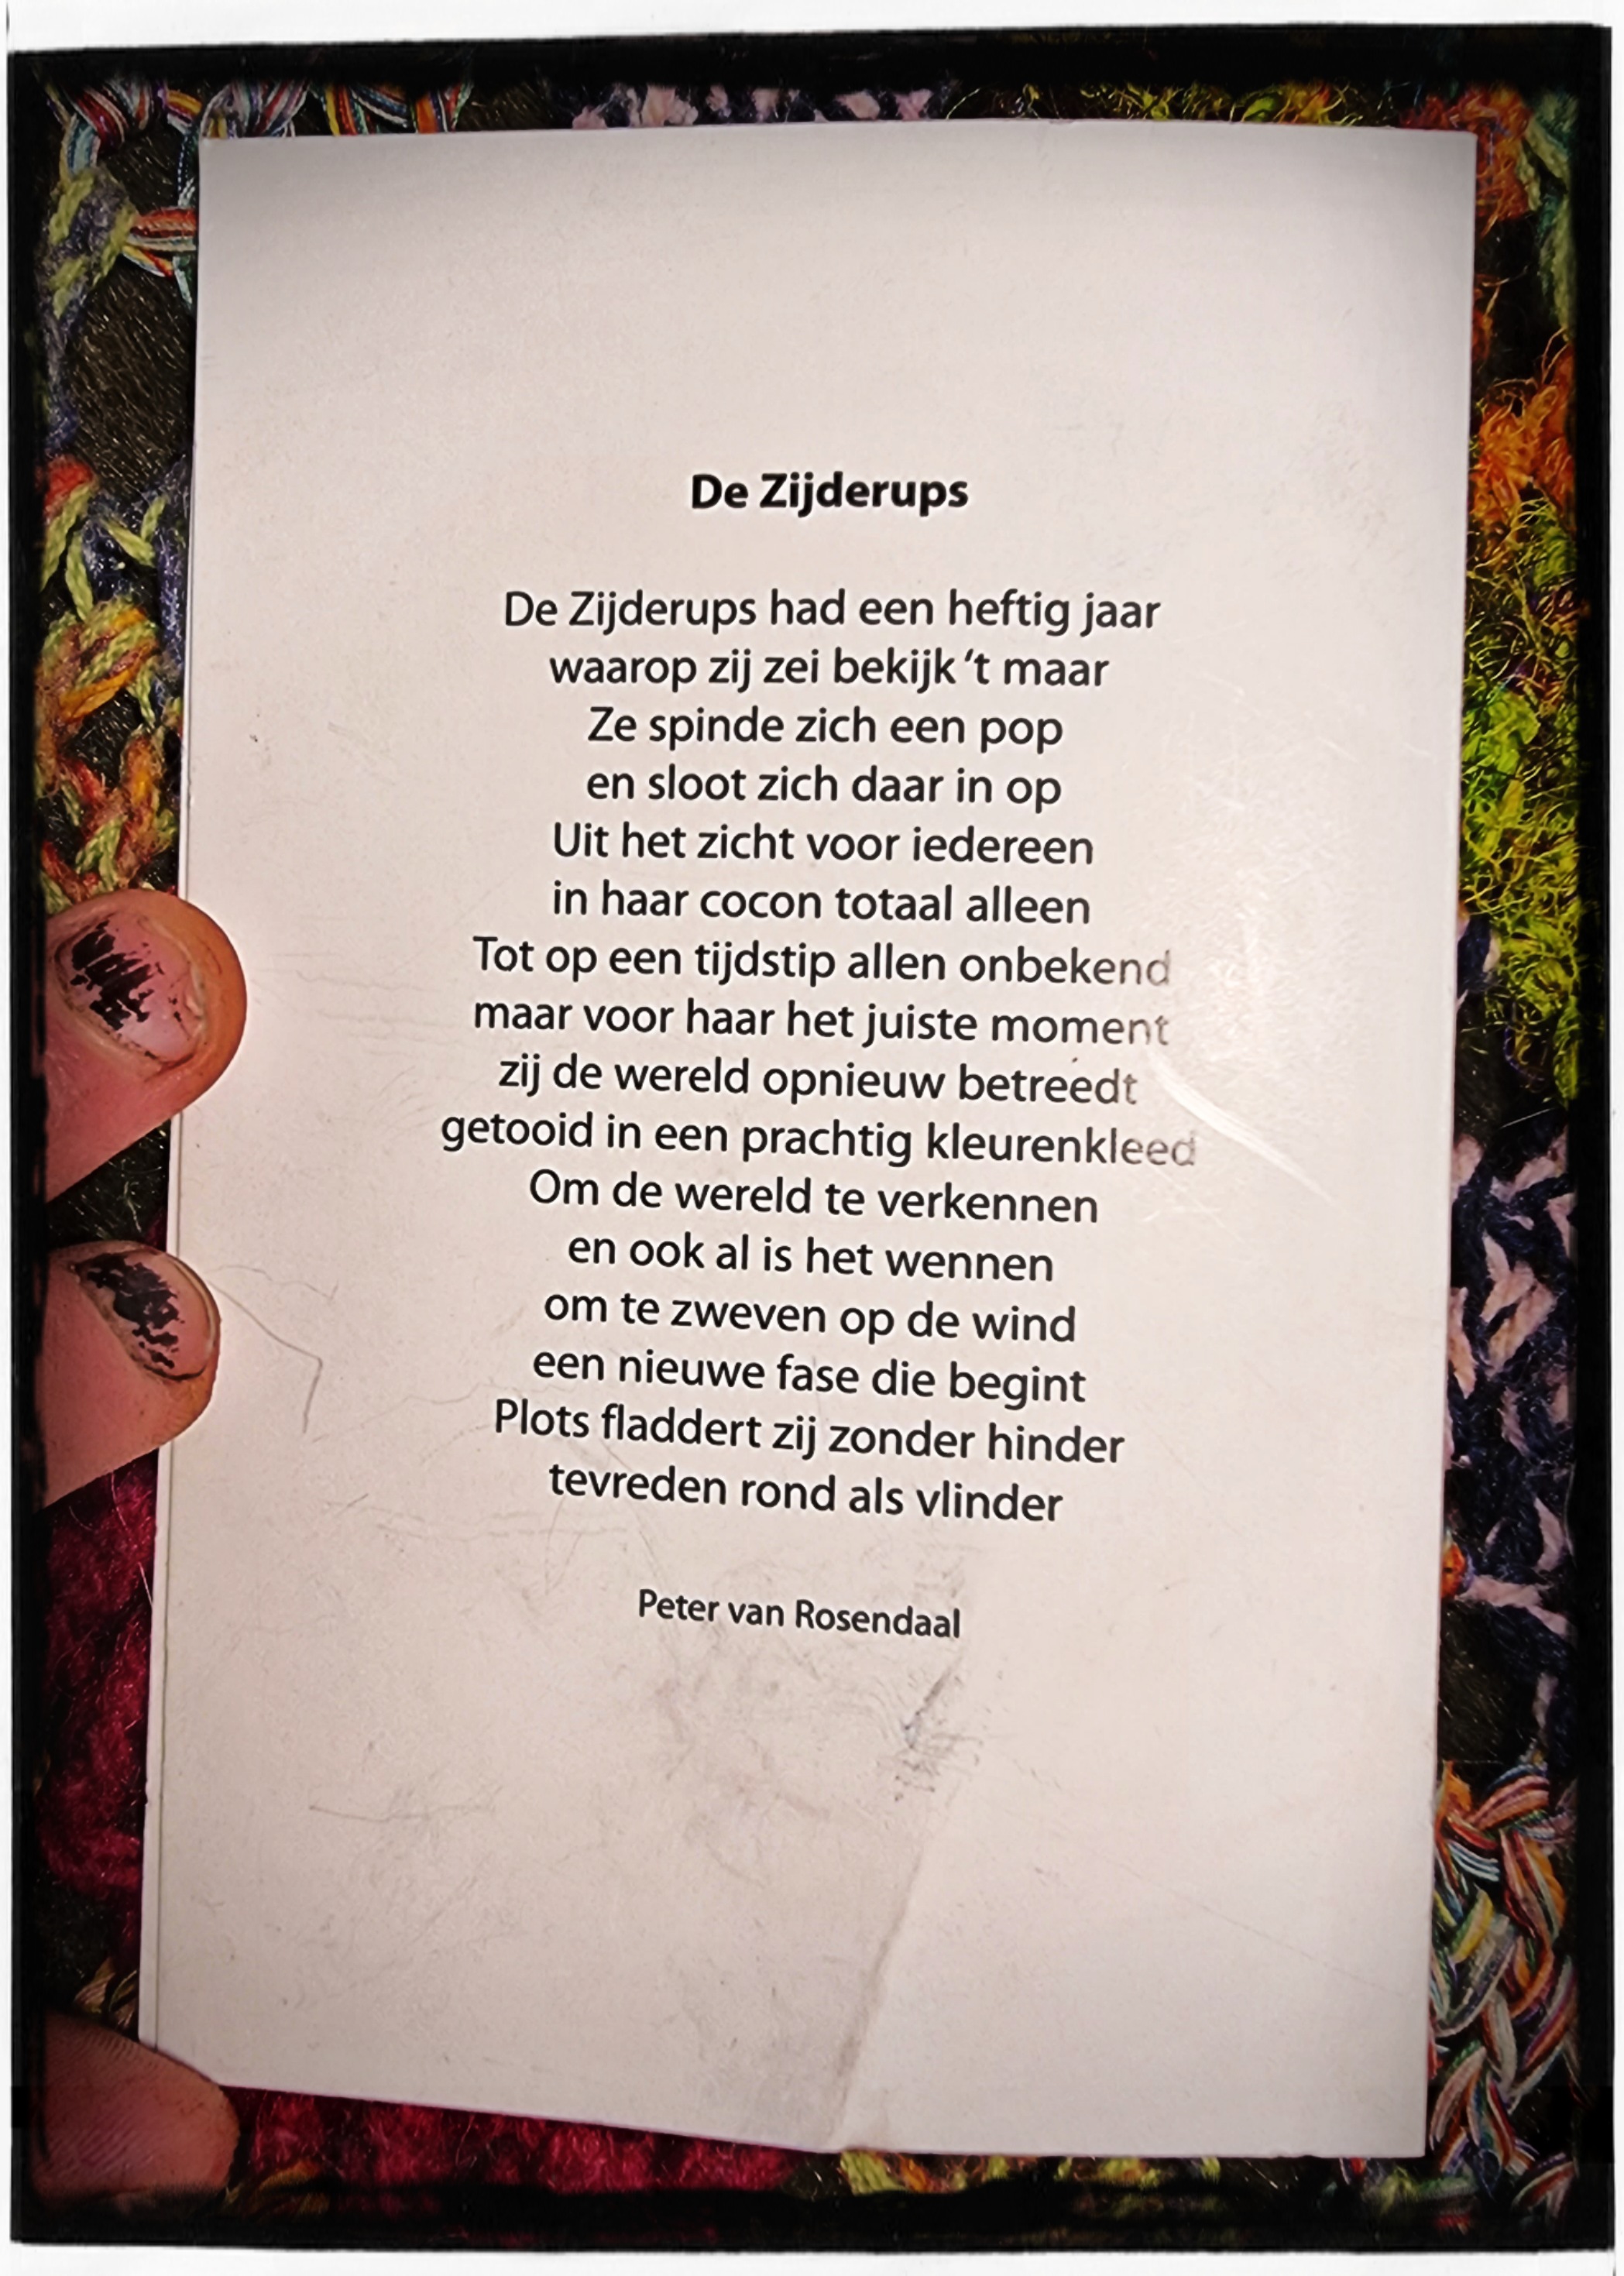 De Zijderups
De Zijderups had een heftig jaar
waarop zij zei bekijk ‘t maar
Ze spinde zich een pop
en sloot zich daar in op
Uit het zicht voor iedereen
in haar cocon totaal alleen
Tot op een tijdstip allen onbekend
maar voor haar het juiste moment
zij de wereld opnieuw betreedt
getooid in een prachtig kleurenkleed
Om de wereld te verkennen
en ook al is het wennen
om te zweven op de wind
een nieuwe fase die begint
Plots fladdert zij zonder hinder
tevreden rond als vlinder
Peter van Rosendaal